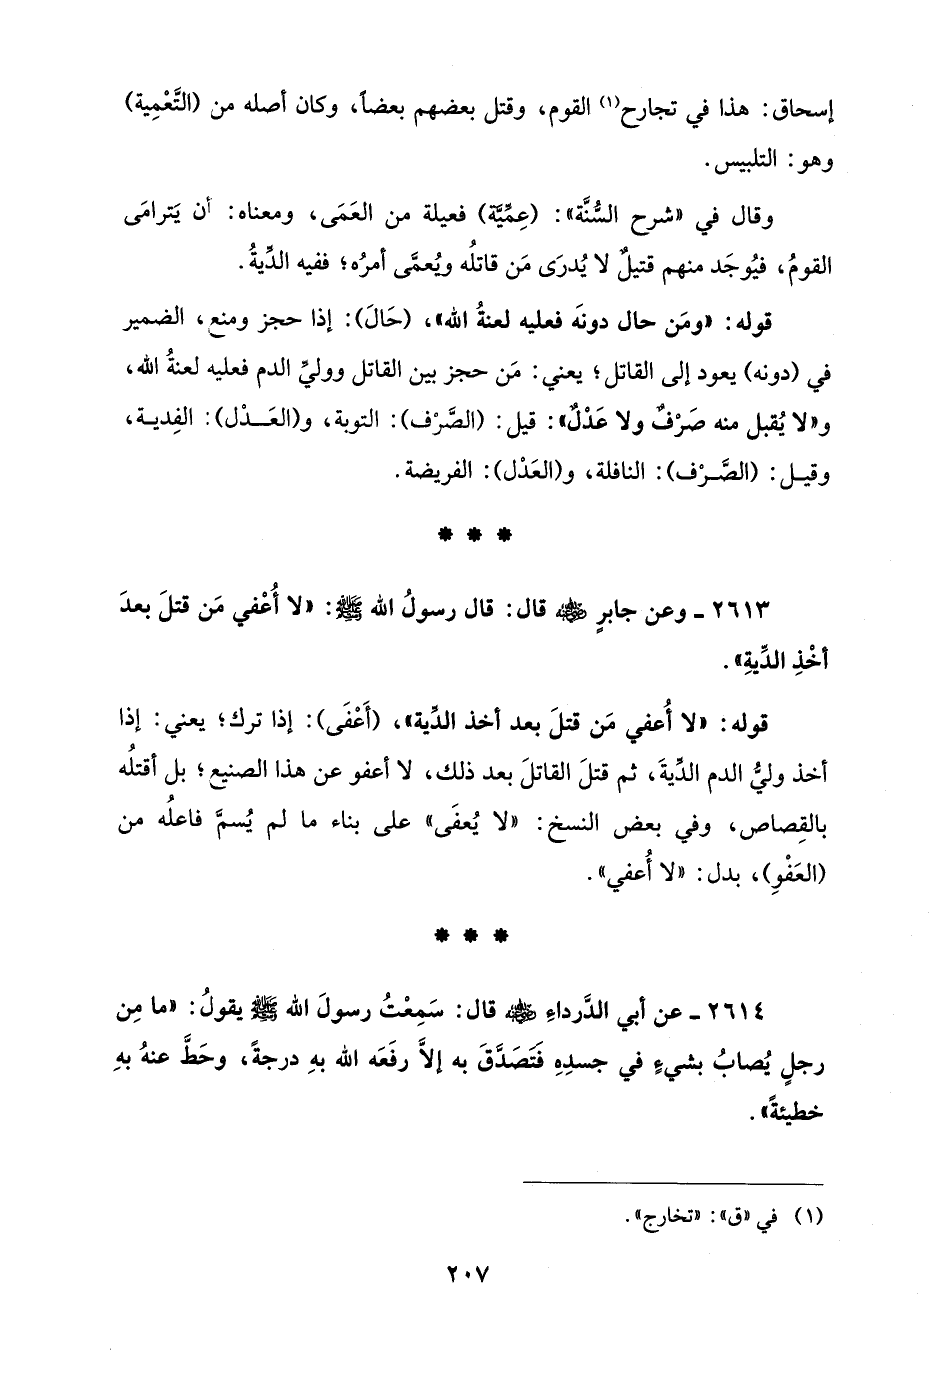 إسحاق: هذا في تجارح(١) القوم، وقتل بعضهم بعضاً، وكان أصله من (التَّعْمِية)
وهو: التلبيس.
وقال في «شرح السُّنَّة»: (عِمِّيَّة) فعيلة من العَمَى، ومعناه: أن يَترامَى
القومُ، فيُوجَد منهم قتيلٌ لا يُدرَى مَن قاتلُه ويُعمَّى أمرُه؛ ففيه الدِّيةُ.
قوله: «ومَن حال دونَه فعليه لعنةُ الله»، (حَالَ): إذا حجز ومنع، الضمير
في (دونه) يعود إلى القاتل؛ يعني: مَن حجز بين القاتل ووليِّ الدم فعليه لعنةُ الله،
و«لا يُقبل منه صَرْفٌ ولا عَدْلٌ»: قيل: (الصَّرْف): التوبة، و(العَـدْل): الفِديـة،
وقيـل: (الصَّـرْف): النافلة، و(العَدْل): الفريضة.
* * *
٢٦١٣ ـ وعن جابرٍ ﵁ قال: قال رسولُ الله ﷺ: «لا أُعْفي مَن قتلَ بعدَ
أخْذِ الدِّيةِ».
قوله: «لا أُعفي مَن قتلَ بعد أخذ الدِّية»، (أَعْفَى): إذا ترك؛ يعني: إذا
أخذ وليُّ الدم الدِّيةَ، ثم قتلَ القاتلَ بعد ذلك، لا أعفو عن هذا الصنيع؛ بل أقتلُه
بالقِصاص، وفي بعض النسخ: «لا يُعفَى» على بناء ما لم يُسمَّ فاعلُه من
(العَفْوِ)، بدل: «لا أُعفي».
* * *
٢٦١٤ ـ عن أبي الدَّرداءِ ﵁ قال: سَمِعْتُ رسولَ الله ﷺ يقولُ: «ما مِن
رجلٍ يُصابُ بشيءٍ في جسدِهِ فَتَصَدَّقَ به إلاَّ رفَعَه الله بهِ درجةً، وحَطَّ عنهُ بهِ
خطيئةً».
(١) في «ق»: «تخارج».
٢٠٧